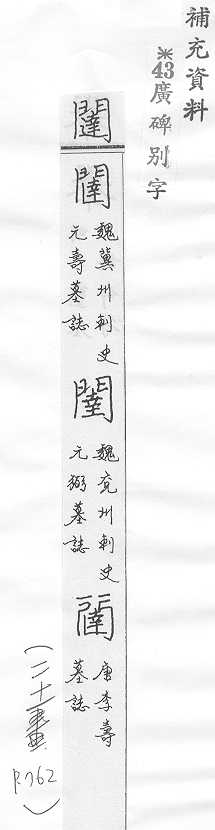 補充資料
※43廣碑別字
闥
闥
魏冀州刺史
元壽墓誌
魏兗州刺史
元弼墓誌
唐李壽
墓誌
(二十一畫
P.762)